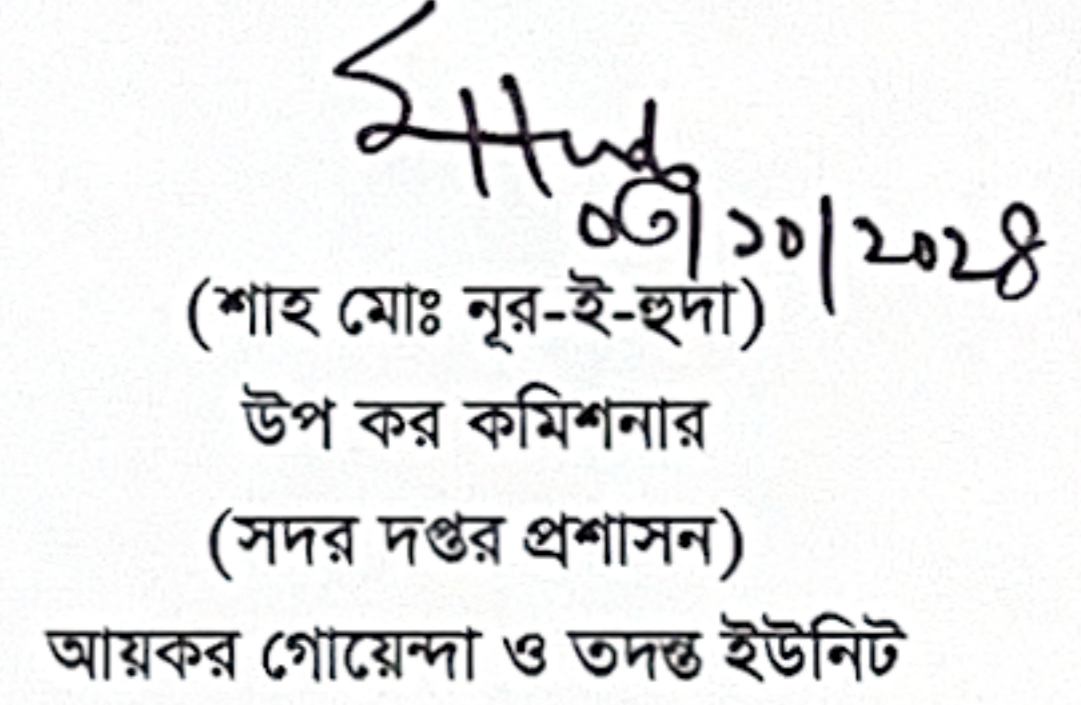 ০৩/১০/২০২৪
(শাহ মোঃ নূর-ই-হুদা)
উপ কর কমিশনার
(সদর দপ্তর প্রশাসন)
আয়কর গোয়েন্দা ও তদন্ত ইউনিট